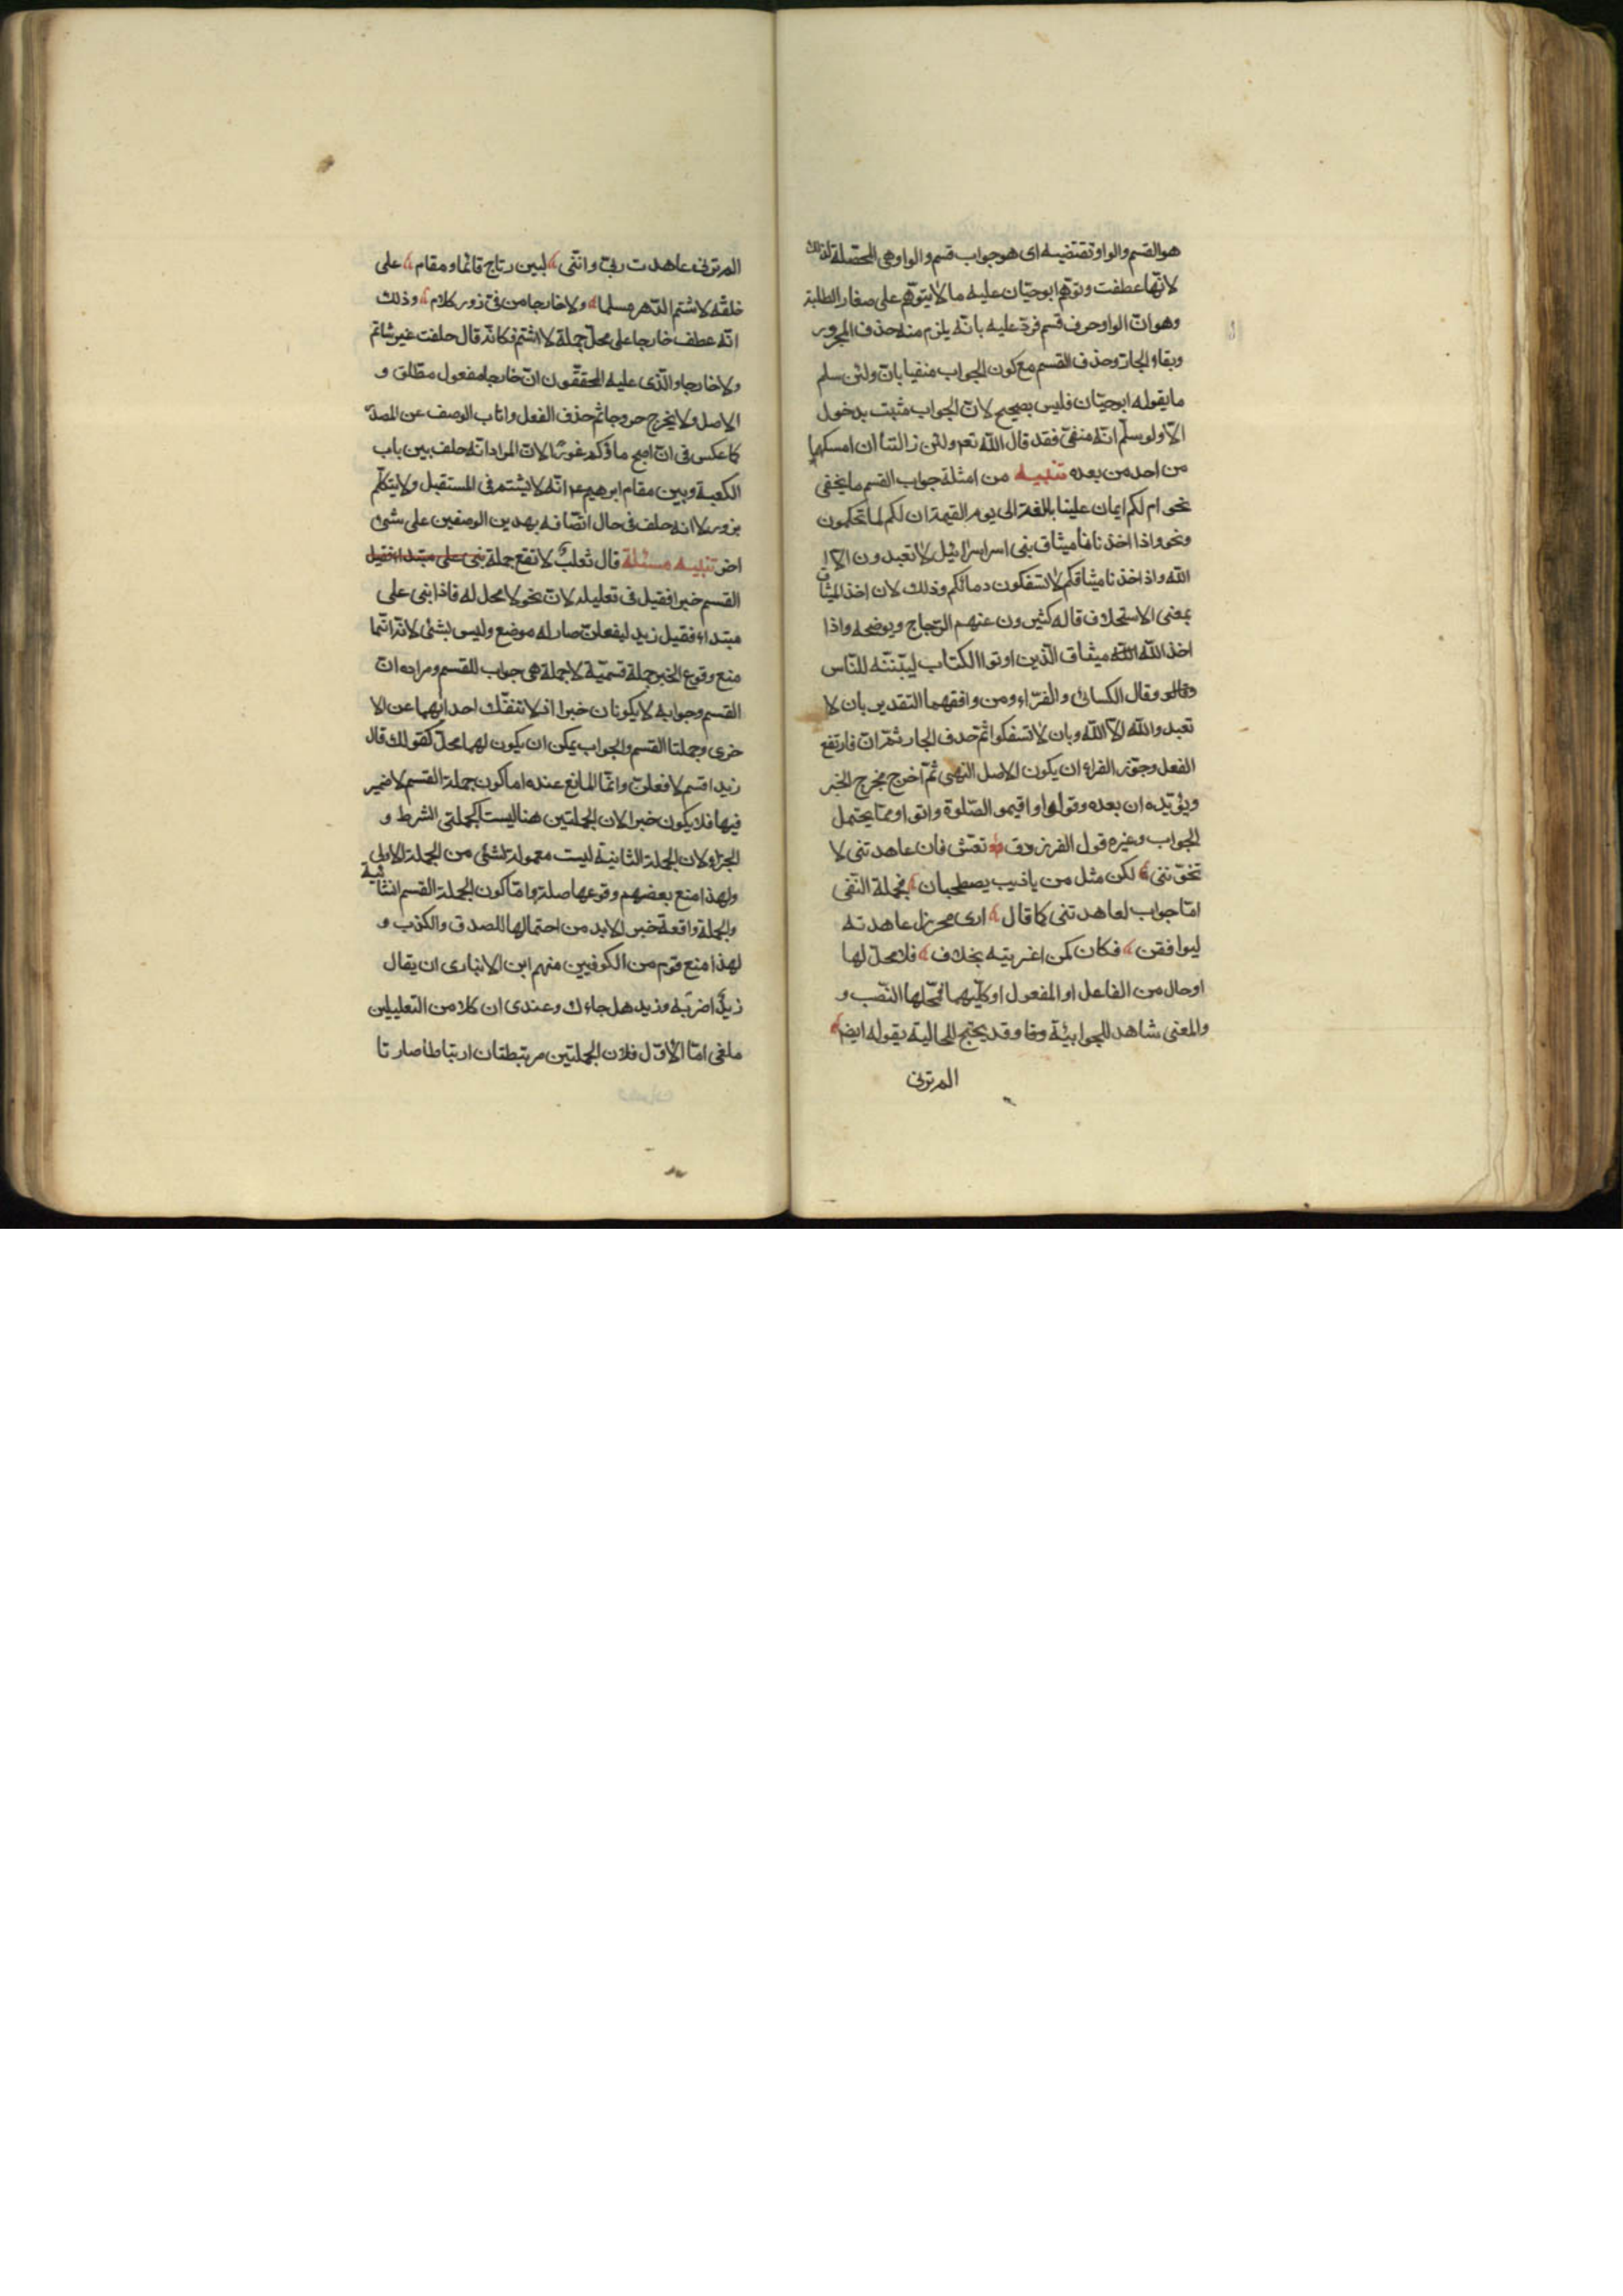 هو القسم والواو تقتضيه اى هو جواب قسم والواو هى المحصّلة لذلك
لانّها عطفت وتوهّم ابو حيّان عليه ما لا يتوهّم على صغار الطلبة
وهو انّ الواو حرف قسم فردّ عليه بانّه يلزم منه حذف المجرور
وبقاء الجار وحذف القسم مع كون الجواب منفيا بان ولئن سلم
ما يقوله ابو حيّان فليس بصحيح لانّ الجواب مثبت بدخول
الّا ولو سلّم انّه منفىّ فقد قال الله تعم ولئن زالتا ان امسكها
من احد من بعده تنبيه من امثلة جواب القسم ما يخفى
نحو ام لكم ايمان علينا بالغة الى يوم القيمة ان لكم لما تحكمون
ونحو واذا اخذنا ميثاق بنى اسراسرائيل لا تعبدون الّا
الله واذ اخذنا ميثاقكم لا تسفكون دمائكم وذلك لان اخذ الميثاق
بمعنى الاستحلاف قاله كثيرون عنهم الزجاج ويوضحه واذا
اخذ الله ميثاق الّذين اوتوا الكتاب ليبّننّه للنّاس
وقال الكسائى والفرّاء ومن وافقهما التقدير بان لا
تعبدوا الله الّا الله وبان لا تسفكوا ثم حدف الجار ثم ان فارتفع
الفعل وجوّز الفراء ان يكون الاصل النهى ثمّ اخرج مخرج الخبر
ويؤيّده ان بعده وقولوا واقيموا الصّلوة واتوا ومما يحتمل
الجواب وغيره قول الفرزدق تعش فان عاهدتنى لا
تخوننى لكن مثل من يا ذيب يصطحبان فجملة النّفى
امّا جواب لعاهدتنى كما قال ارى محرزا عاهدته
ليوافقن فكان كمن اغريته بخلاف فلا محلّ لها
او حال من الفاعل او المفعول او كليهما فمحّلها النّصب و
والمعنى شاهد للجوابيّة وقد يحتج للحالية بقوله ايضم
المرترنى
المرترنى عاهدت ربىّ وانّنى لبين رتاج قائما ومقام على
خلقه لا شتم الدّهر مسلما ولا خارجا من فىّ زور كلام وذلك
انّه عطف خارجا على محلّ جملة لا اشتم فكانّه قال حلفت غير شاتم
ولا خارجا والّذى عليه المحققّون انّ خارجا مفعول مطلق و
الاصل ولا يخرج خروجا ثم حذف الفعل واناب الوصف عن المصدر
كما عكس فى ان اصبح ماؤكم غورًا لانّ المراد انّه حلف بين باب
الكعبة وبين مقام ابرهيم عم انّه لا يشتم فى المستقبل ولا يتكلّم
بزور لا انه حلف فى حال اتّصافه بهدين الوصفين على شئ
اخر تنبيه مسئلة قال ثعلب لا تقع جملة بنى على مبتداء فقيل
القسم خبرا فقيل فى تعليله لانّ نحو لا محل له فاذا بنى على
مبتداء فقيل زيد ليفعلنّ صار له موضع وليس بشئ لانّه انّما
منع وقوع الخبر جملة قسميّة لا جملة هى جواب للقسم ومراده انّ
القسم وجوابه لا يكونان خبرا اذ لا تنفّك احدايهما عن الا
خرى وجملتا القسم والجواب يمكن ان يكون لهما محلّ كقولك قال
زيد اقسم لافعلنّ وانّما المانع عنده اما كون جملة القسم لا ضمير
فيها فلا يكون خبرا لان الجملتين هنا ليست كجملتى الشرط و
الجزاء لان الجملة الثانية ليست معمولة لشئ من الجملة الاولى
ولهذا منع بعضهم وقوعها صلة وامّا كون الجملة القسم انشائية
والجملة واقعة خبر الا بد من احتمالها للصدق والكذب و
لهذا منع قوم من الكوفيين منهم ابن الانبارى ان يقال
زيدٌ اضربه وزيد هل جاءك وعندى ان كلا من التعليلين
ملغى امّا الاوّل فلان الجملتين مرتبطتان ارتباطا صارتا